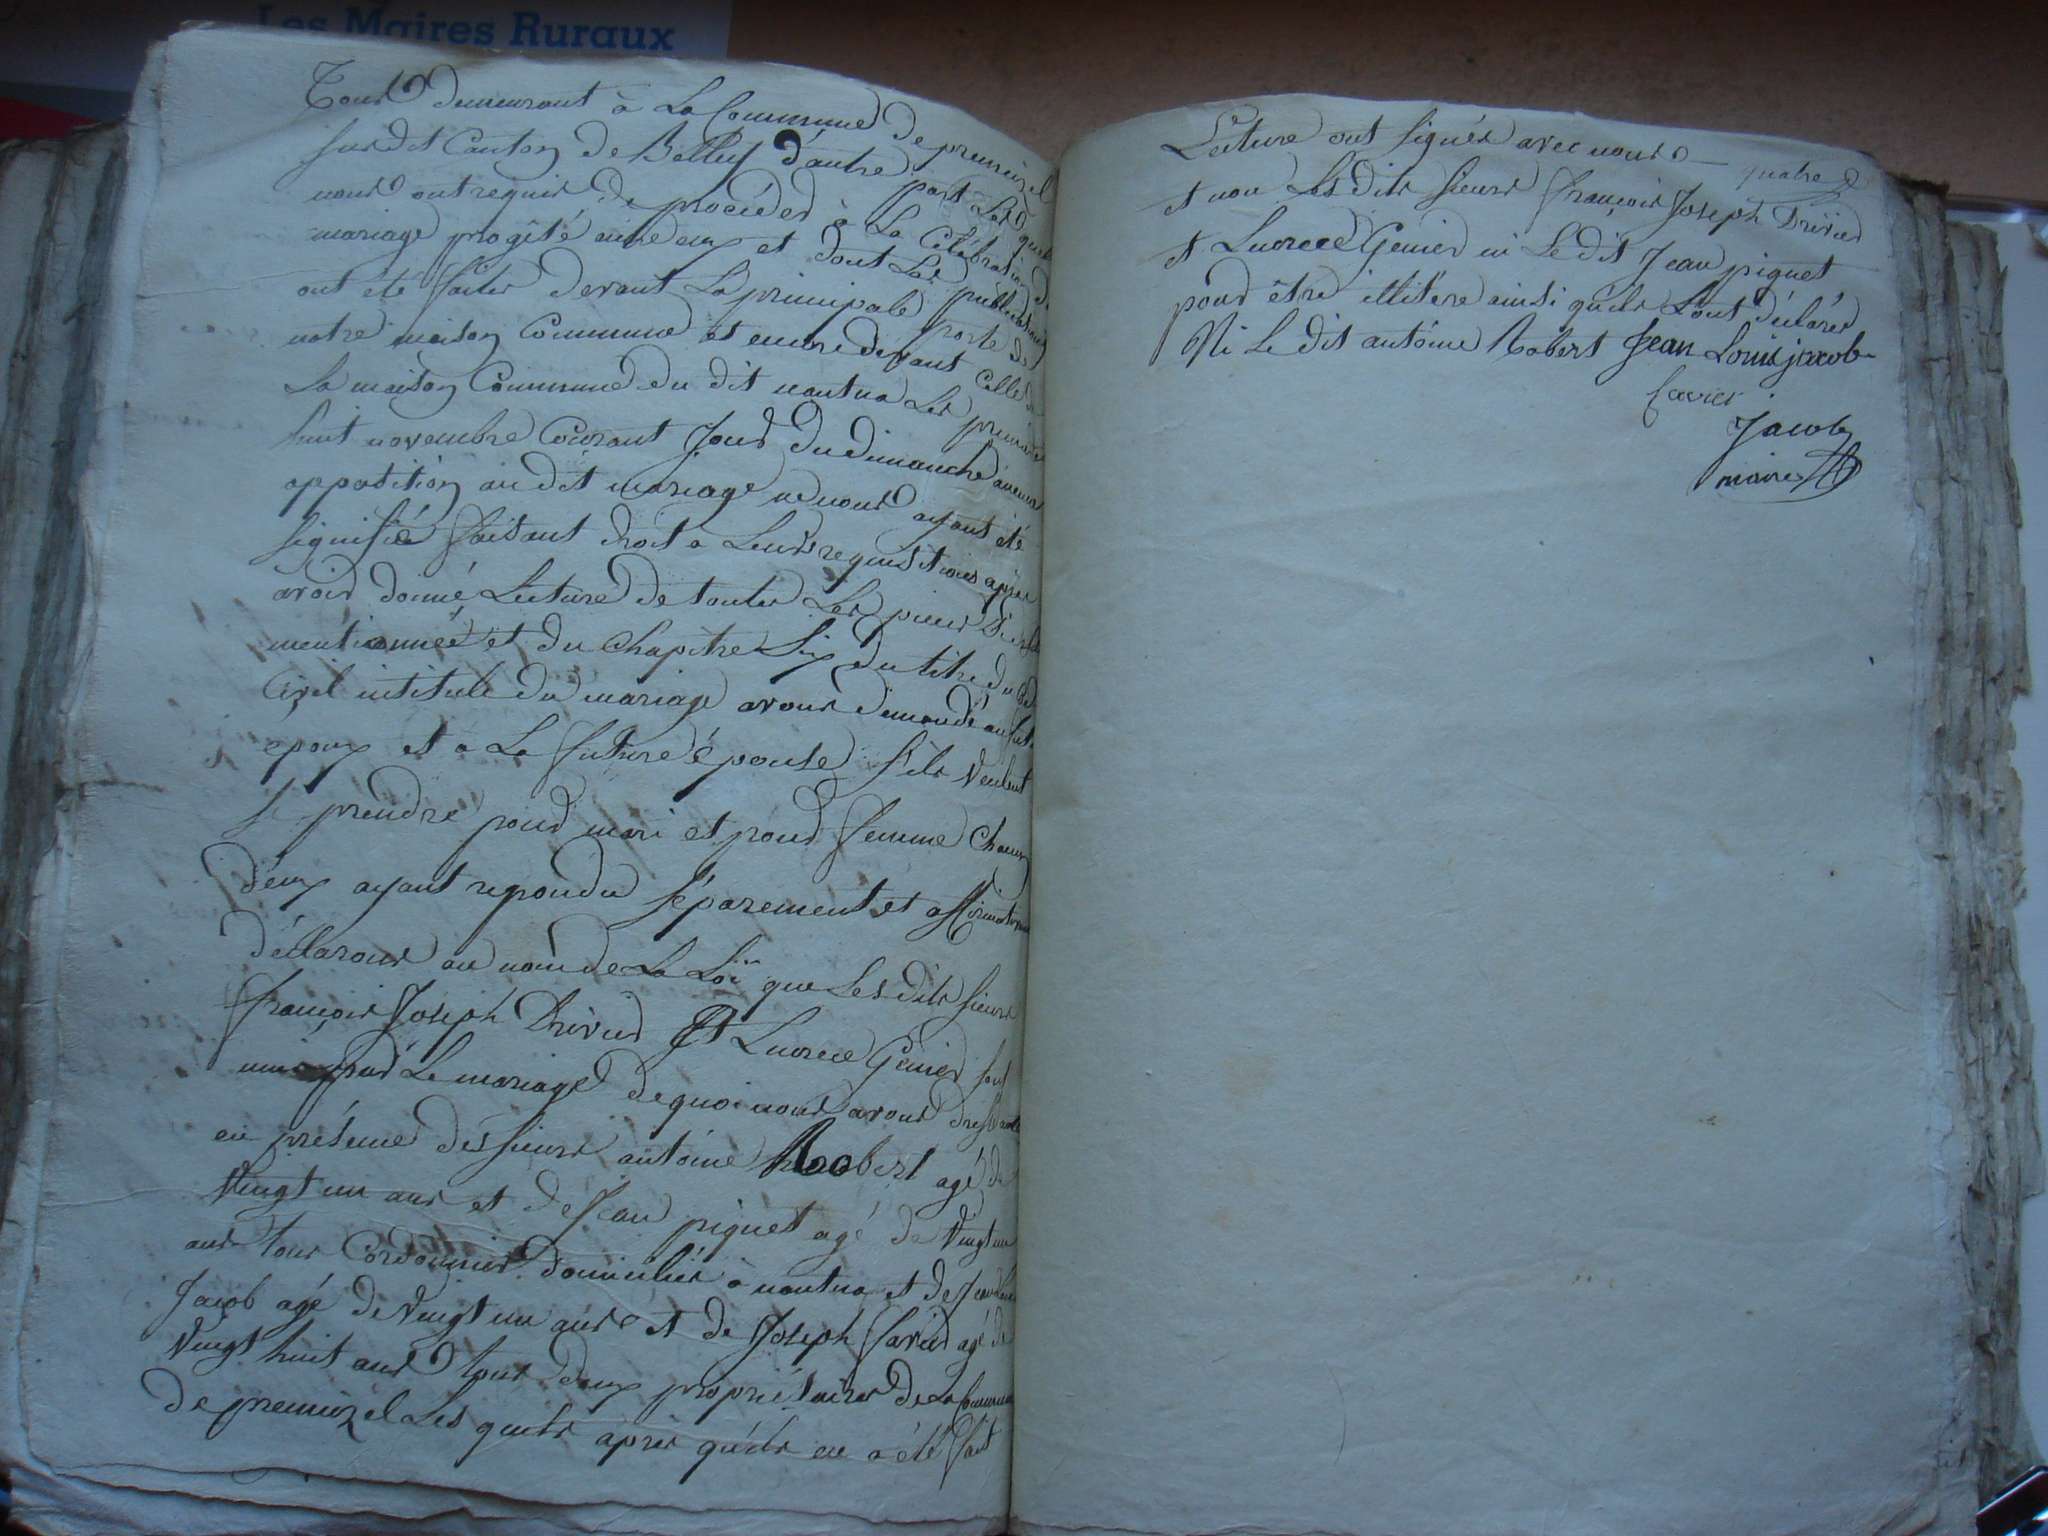 Les Maires Ruraux
Tous demeurant à La Commune de premeizel
susdit Canton de Belley d'autre part Les quels
nous ont requis de procéder à La Célébration du
mariage progété entre eux et dont Les publications
ont été faites devant La principale porte de
notre maison Commune et encore devant Celle de
La maison Commune du dit nantua Les premier et
huit novembre Courant Jour du dimanche aucune
oppodition au dit mariage ne nous ayant été
signifiée faisant droit a Leurs requisitions après
avoir donné Lecture de toutes Les pieces
mentionnée et du Chapitre Six du titre du Code
Civil intitule du mariage avons demandé au futur
epoux et a La future épouse s'ils veulent
se prendre pour mari et pour femme Chacun
d'eux ayant repondu séparement et affirmativement
déclarons au nom de La Loi que Les dits sieurs
françois Joseph Drivier Et Lucrece Genier sont
unis par Le mariage de quoi nous avons dressé acte
en présence des sieurs antoine Robert agé de
vingt un ans et de Jean piquet agé de vingt un
ans tous Cordonnier domiciliés a nantua et de Jean Louis
Jacob agé de vingt un ans et de Joseph Cavier agé de
vingt huit ans tous deux propriétaires de La Commune
de premeizel Les quels après qu'ils en a été fait
Lecture ont signés avec nous
quatre
et non Les dits sieurs françois Joseph Drivier
et Lucrece Genier ni Le dit Jean piquet
pour être illitere ainsi qu'ils L'ont déclarés
Ni Le dit antoine Robert Jean Louis jacob
Cavier
Jacob
maire